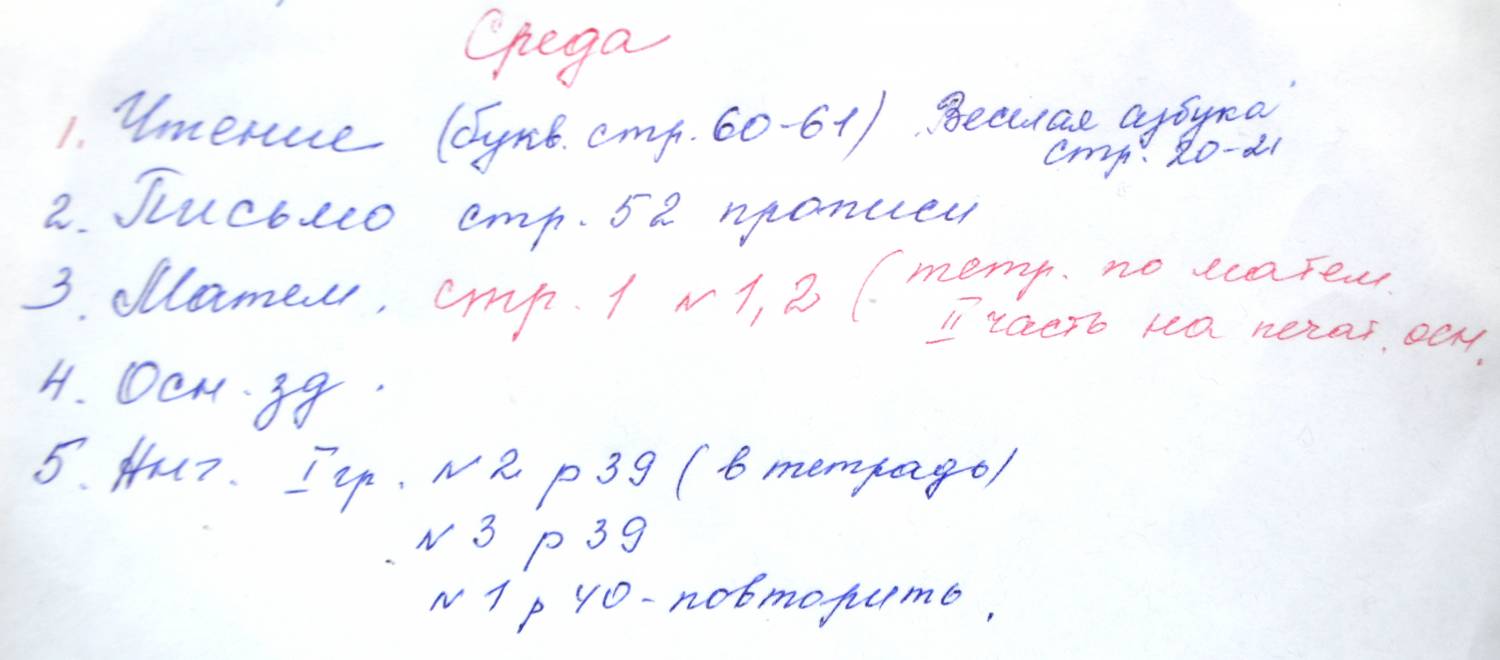 Среда
1. Чтение (букв. стр. 60-61) Веселая азбука
стр. 20-21
2. Письмо стр. 52 прописи
3. Матем. стр. 1 №1,2 (тетр. по матем.
II часть на печат. осн.
4. Осн. зд.
5. Анг. I гр. №2 p 39 (в тетрадь)
№3 p 39
№1 p 40 - повторить.